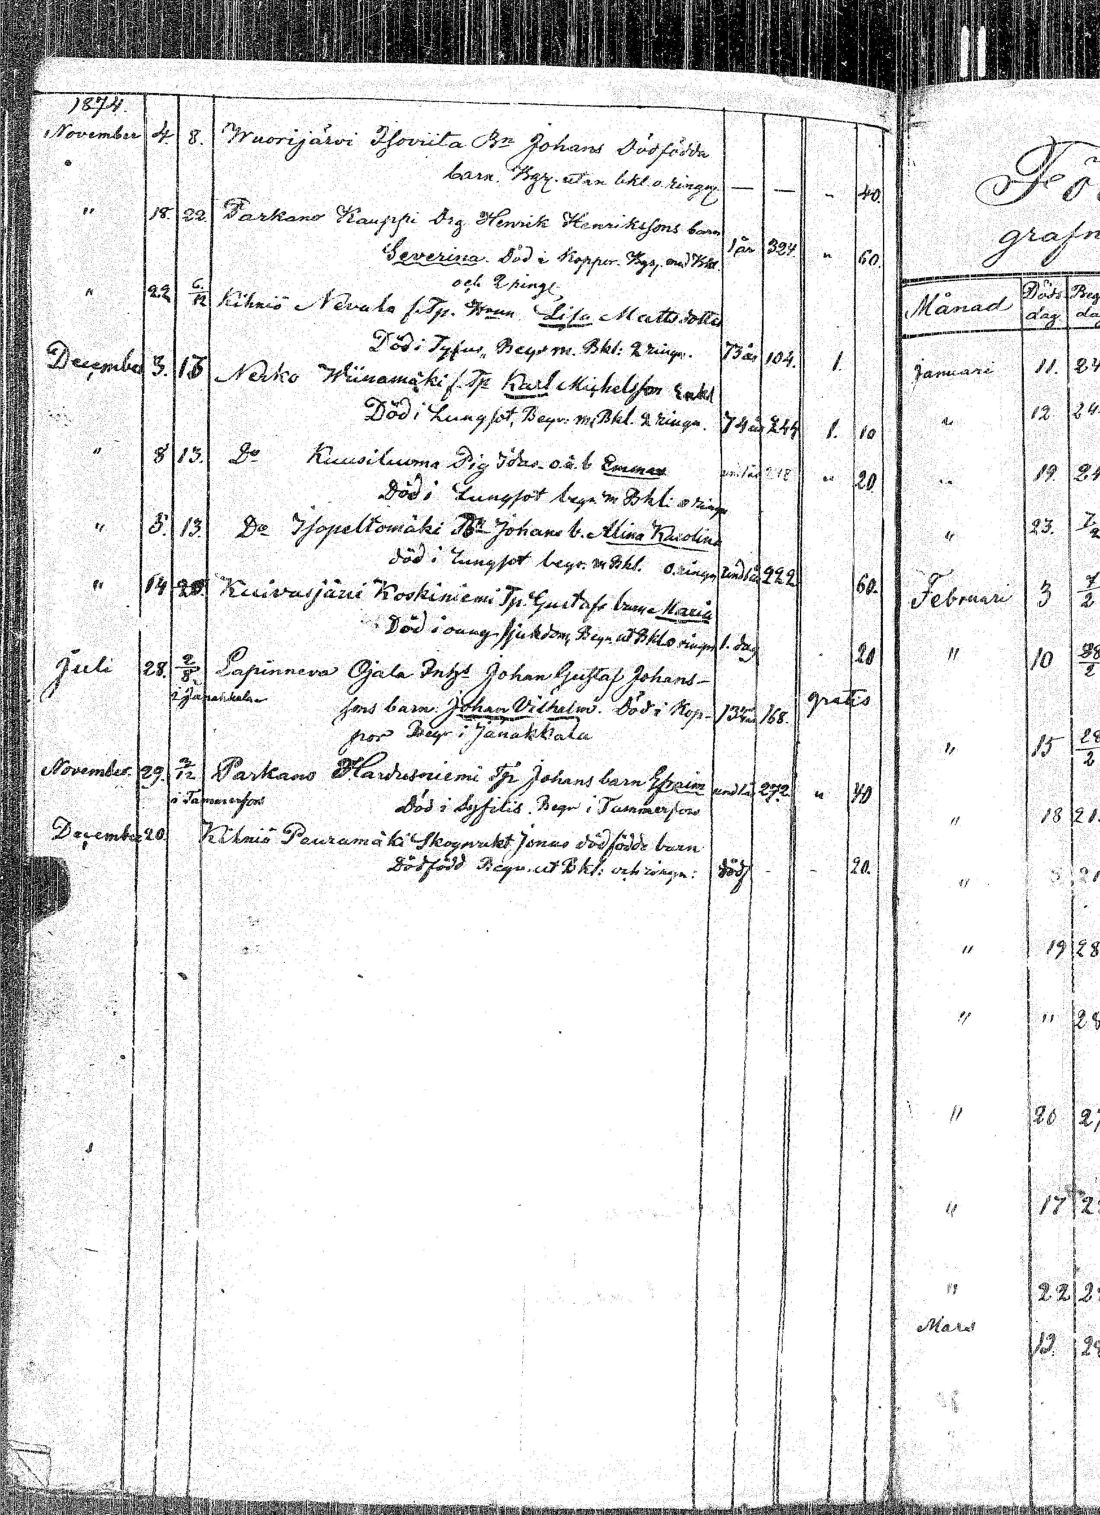 1874.
November 4. 8. Wuorijärvi Isoviita Bn Johans Dödfödda
barn. Bgr. utan bkl. o. ringn. — — " 40.
" 18. 22. Parkano Kauppi Drg Henrik Henrikssons barn
Severina. Död i Koppor. Bgr. med Bkl. 1 år 324 " 60.
och 2 ringn.
" 22 6/12 Kihniö Nevala f. Tp. Enkan Lisa Mattsdotter
Död i Tyfus, Begr. m. Bkl: 2 ringn. 73 år 104. 1.
December 3. 13 Nerko Wiinamäki f. Tp Karl Michelsson Enkl
Död i Lungsot, Begr. m. Bkl. 2 ringn. 74 år 244 1. 10
" 8 13. Do Kuusiluoma Pig Idas o.ä. b Emma
Död i Lungsot begr. m Bkl: o ringn " 20
" 5. 13. Do Isopeltomäki Bn Johans b. Alina Karolina
död i Lungsot begr. m Bkl. o. ringn und 1 år 222 60.
" 14 20. Kuivasjärvi Koskiniemi Tp. Gustafs barn Maria
Död i oang. sjukdom, Begr. ut Bkl o ringn 1. dag . 20
Juli 28. 2/8 Lapinneva Ojala Inhs Johan Gustaf Johans-
i Janakkala
sons barn. Johan Vilhelm. Död i Kop- 168. gratis
por Begr i Janakkala
November. 29. 2/12 Parkano Hardusniemi Tp Johans barn Efraim und 1 år 272. " 40
i Tammerfors
Död i Syfilis. Begr i Tammerfors
December 20. Kihniö Pauramäki Skogvakt Jonas dödfödda barn
Dödfödd Begr. ut Bkl: och ringn: dödf - - 20.
Fö
grafn
Månad Döds dag. Beg dag
Januari 11. 24
" 12 24.
" 19. 24
" 23. 7/2
Februari 3 7/2
" 10 28/2
" 15 28/2
" 18 21.
" 21
" 19 28
" " 28
" 20 27
" 17 2
" 22 2
Mars
12. 28